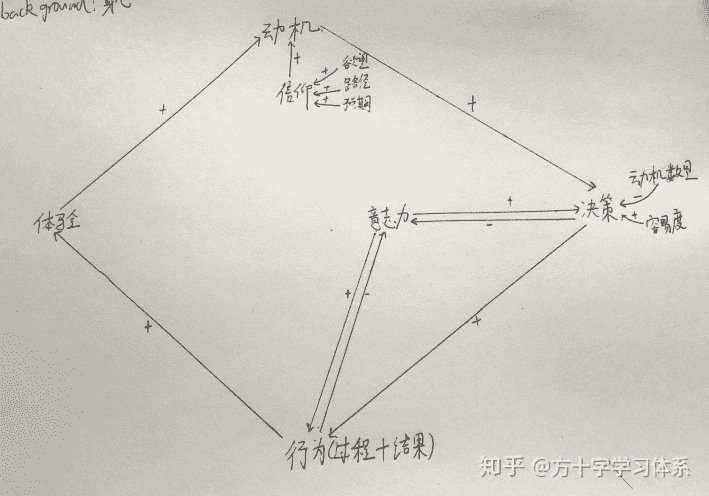 background:
动机
+
欲望
+
信仰
+
路径
+
预期
+
+
+
体验
意志力
+
-
决策
动机数量
-
+
容易度
+
-
+
+
行为(过程+结果)
知乎 @方十字学习体系